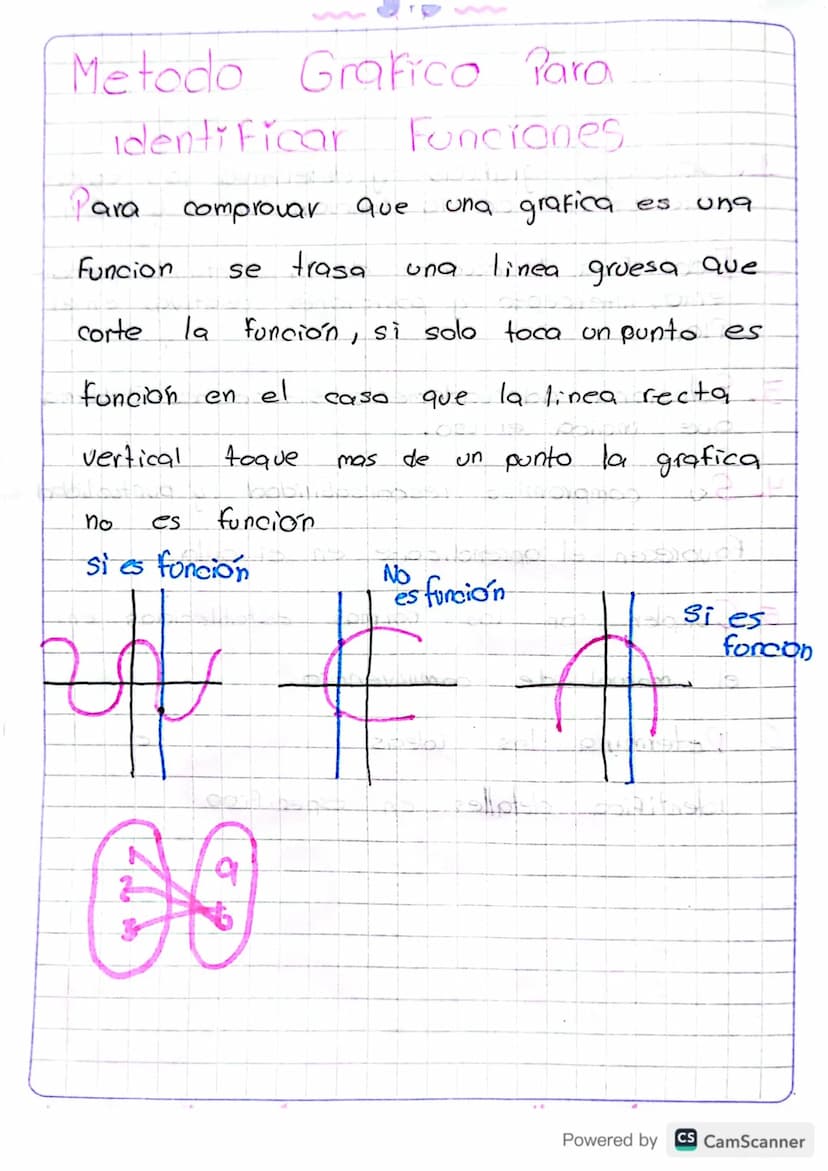 Metodo Grafico Para
identificar Funciones
Para comprovar que una grafica es una
Funcion se trasa una linea gruesa que
corte la función, si solo toca un punto es
función en el caso que la linea recta
vertical toque mas de un punto la grafica
no es función
si es función
No
es función
Si es
forcon
1
2
3
a
b
Powered by CS CamScanner